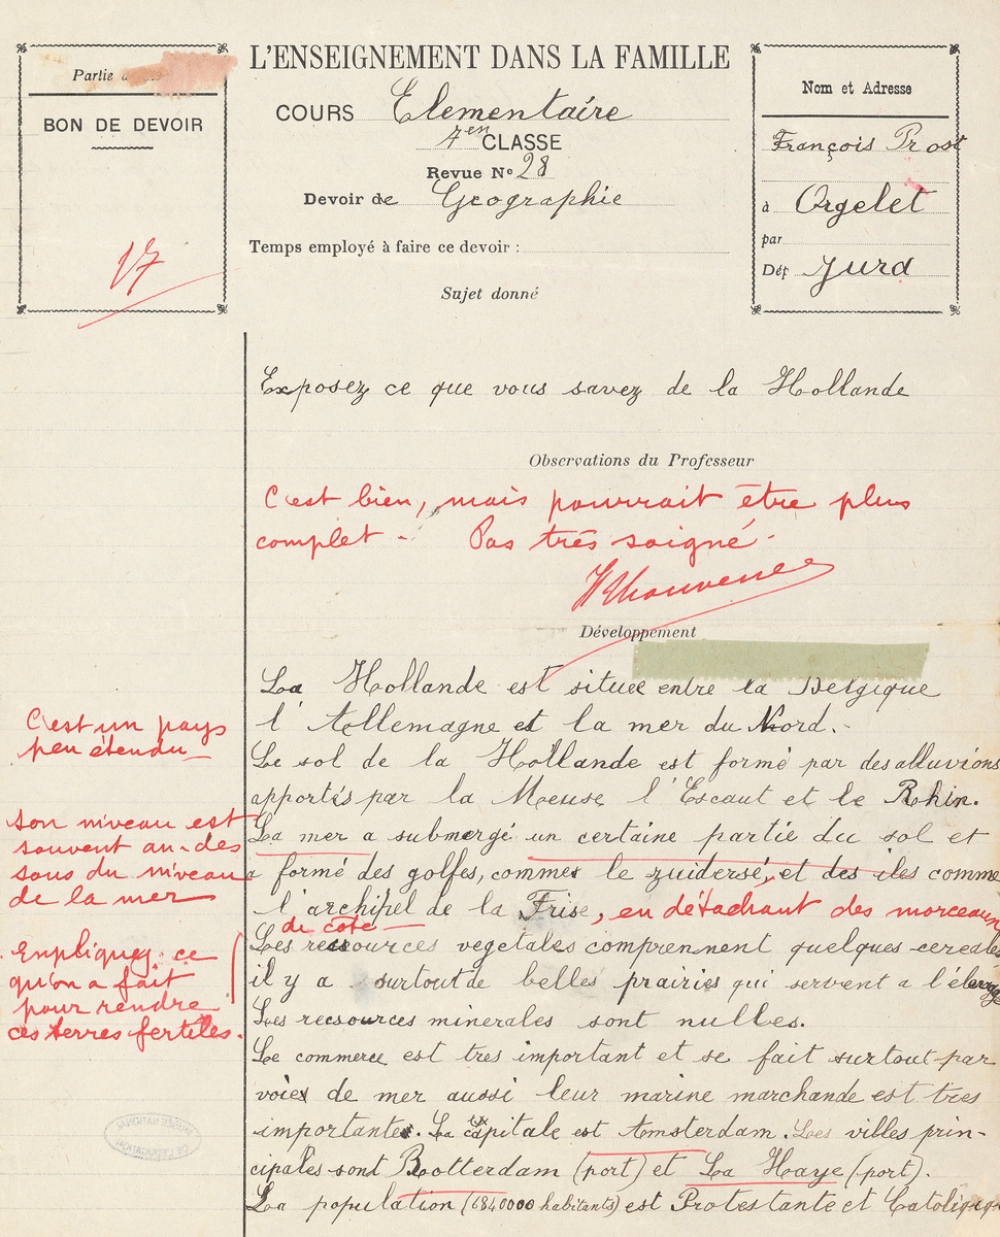 L'ENSEIGNEMENT DANS LA FAMILLE
Partie
BON DE DEVOIR
17
COURS Elementaire
7en CLASSE
Revue No 28
Devoir de Geographie
Temps employé à faire ce devoir :
Sujet donné
Nom et Adresse
François Prost
à Orgelet
par
Dép Jura
Exposez ce que vous savez de la Hollande
Observations du Professeur
C'est bien, mais pourrait être plus
complet - Pas très soigné -
Développement
La Hollande est située entre la Belgique
l'Allemagne et la mer du Nord.-
Le sol de la Hollande est formé par des alluvions
apportés par la Meuse l'Escaut et le Rhin.
La mer a submergé un certaine partie du sol et
a formé des golfes, commes le zuidersé, et des iles comme
l'archipel de la Frise, en détachant des morceaux
de côté
Les ressources vegetales comprennent quelques cereales
il y a surtout de belles prairies qui servent a l'élevage
Les recsources minerales sont nulles.
Le commerce est tres important et se fait surtout par
voies de mer aussi leur marine marchande est tres
importante. La capitale est Amsterdam. Les villes prin-
cipales sont Rotterdam (port) et La Haye (port).
La population (6840000 habitants) est Protestante et Catolique
C'est un pays
peu étendu
son niveau est
souvent au-des
sous du niveau
de la mer
Expliquez ce
qu'on a fait
pour rendre
ces terres fertiles.